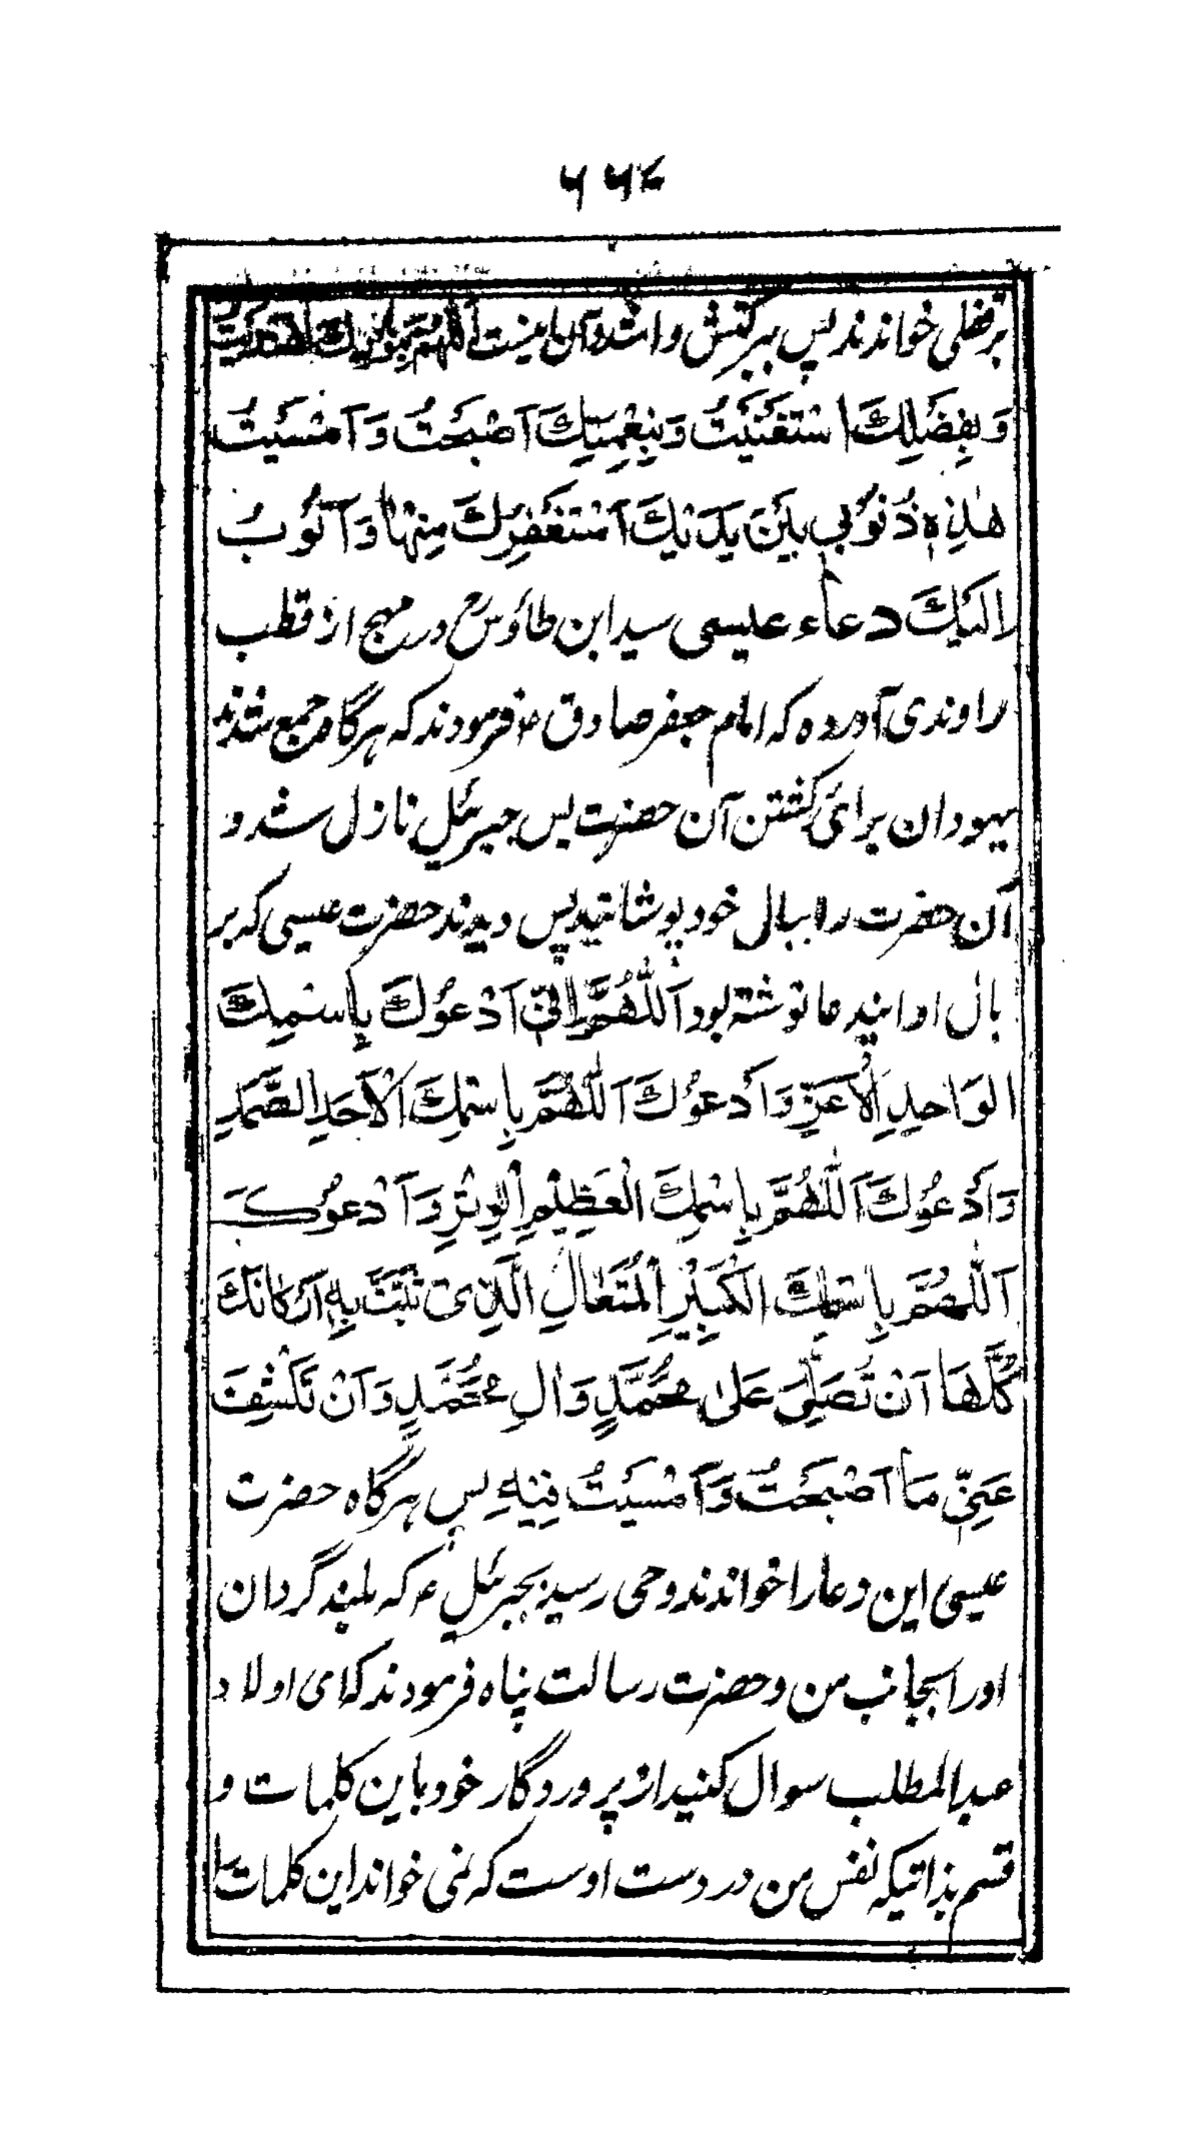 ۶۶۴
خواندند پس ببرکتش و آن اینست اللهم بنورك اهتدیت
وَبِفَضْلِكَ اسْتَغْنَیْتُ وَبِنِعْمَتِكَ اَصْبَحْتُ وَ اَمْسَیْتُ
هٰذِهٖ ذُنُوْبِی بَیْنَ یَدَیْكَ اَسْتَغْفِرُكَ مِنْهَا وَ اَتُوْبُ
اِلَیْكَ دعاء عیسی سید ابن طاؤس رح در مهج از قطب
راوندی آورده که امام جعفر صادق ع فرمودند که هرگاه جمع شدند
یهودان برائ کشتن آن حضرت پس جبرئیل نازل شد و
آن حضرت را ببال خود پوشانید پس دیدند حضرت عیسی که بر
بال او ایندعا نوشته بود اَللّٰهُمَّ اِنِّی اَدْعُوْكَ بِاسْمِكَ
الْوَاحِدِ الْاَعَزِّ وَ اَدْعُوْكَ اَللّٰهُمَّ بِاسْمِكَ الْاَحَدِ الصَّمَدِ
وَ اَدْعُوْكَ اَللّٰهُمَّ بِاسْمِكَ الْعَظِیْمِ الْوِتْرِ وَ اَدْعُوْكَ
اَللّٰهُمَّ بِاسْمِكَ الْكَبِیْرِ الْمُتَعَالِ الَّذِیْ ثَبَتَّ بِهٖ اَرْكَانَكَ
كُلَّهَا اَنْ تُصَلِّیَ عَلٰی مُحَمَّدٍ وَ اٰلِ مُحَمَّدٍ وَ اَنْ تَكْشِفَ
عَنِّیْ مَا اَصْبَحْتُ وَ اَمْسَیْتُ فِیْهِ پس هرگاه حضرت
عیسی این دعا را خواندند وحی رسید بجبرئیل ع که بلند گردان
او را بجانب من و حضرت رسالت پناه فرمودند که ای اولاد
عبدالمطلب سوال کنید از پروردگار خود باین کلمات و
قسم بذاتیکه نفس من در دست اوست که نمی خواند این کلمات را